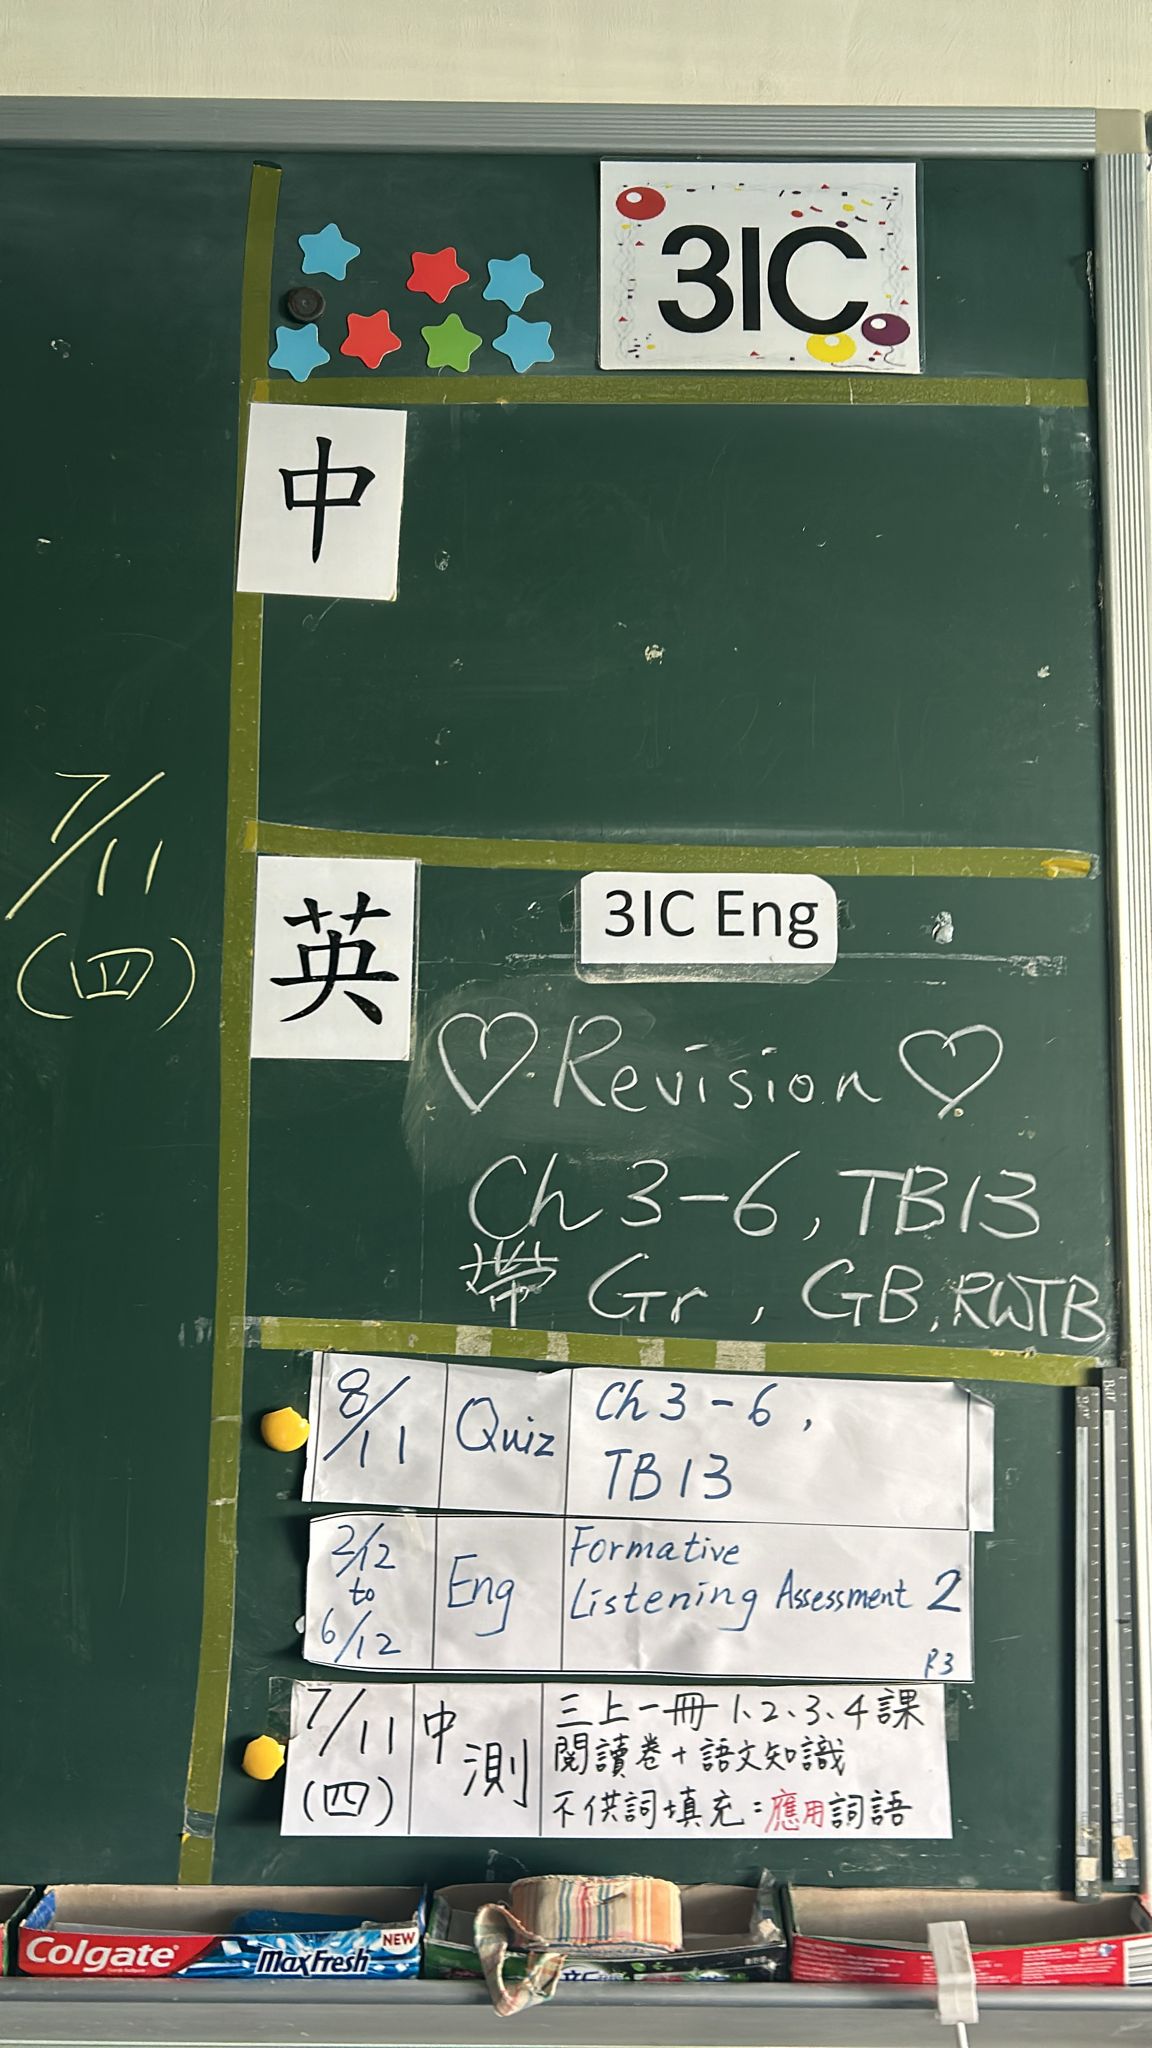 3IC
中
7/11
(四)
英
3IC Eng
♡ Revision ♡
Ch 3-6, TB13
帶 Gr, GB, RWTB
8/11 Quiz Ch 3-6,
TB 13
2/12
to
6/12
Eng
Formative
Listening Assessment 2
P.3
7/11
(四)
中
測
三上一冊 1、2、3、4課
閱讀卷+語文知識
不供詞填充:應用詞語
Colgate
MaxFresh
NEW